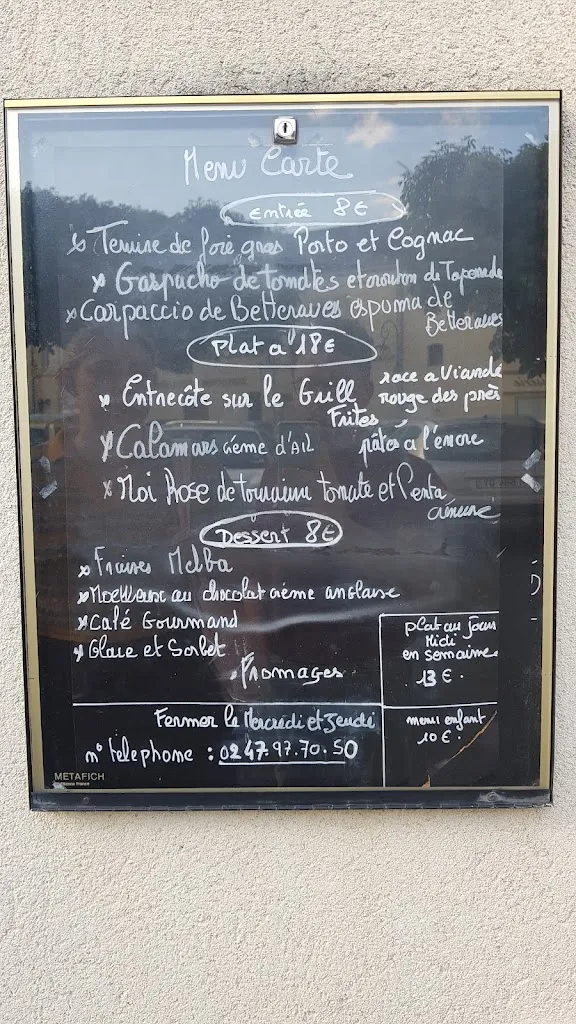 Menu Carte
Entrée 8€
Terrine de foie gras Porto et Cognac
Gaspacho de tomates et crouton de Tapenade
Carpaccio de Betteraves espuma de
Betteraves
Plat a 18€
Entrecôte sur le Grill race a Viande
rouge des près
Frites
Calamars crème d'Ail pâtes à l'encre
Noi Rose de tomate et Penta
Dessert 8€
Fraises Melba
Moelleux au chocolat crème anglaise
Café Gourmand
Glace et Sorbet
Fromages
plat du jour
Midi
en semaine
13€.
Fermer le Mercredi et Jeudi
n° telephone : 02 47.97.70.50
menu enfant
10€.
METAFICH